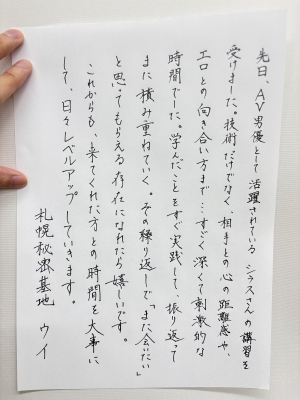 先日、AV男優として活躍されているシラスさんの講習を
受けました。技術だけでなく、相手との心の距離感や、
エロとの向き合い方まで…すごく深くて刺激的な
時間でした。学んだことをすぐ実践して、振り返って
また積み重ねていく。その繰り返しで「また会いたい」
と思ってもらえる存在になれたら嬉しいです。
これからも、来てくれた方との時間を大事に
して、日々レベルアップしていきます。
札幌秘密基地 ウイ